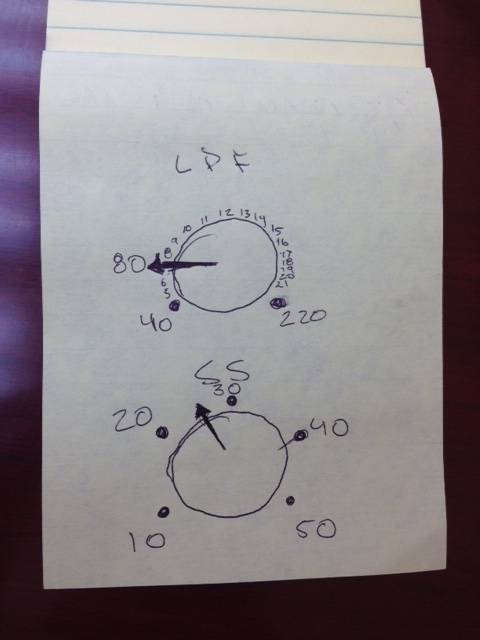 LPF
10 11 12 13 14 15
9 16
8 17
80 18
19
6 20
5 21
40 220
SS
30
20 40
10 50